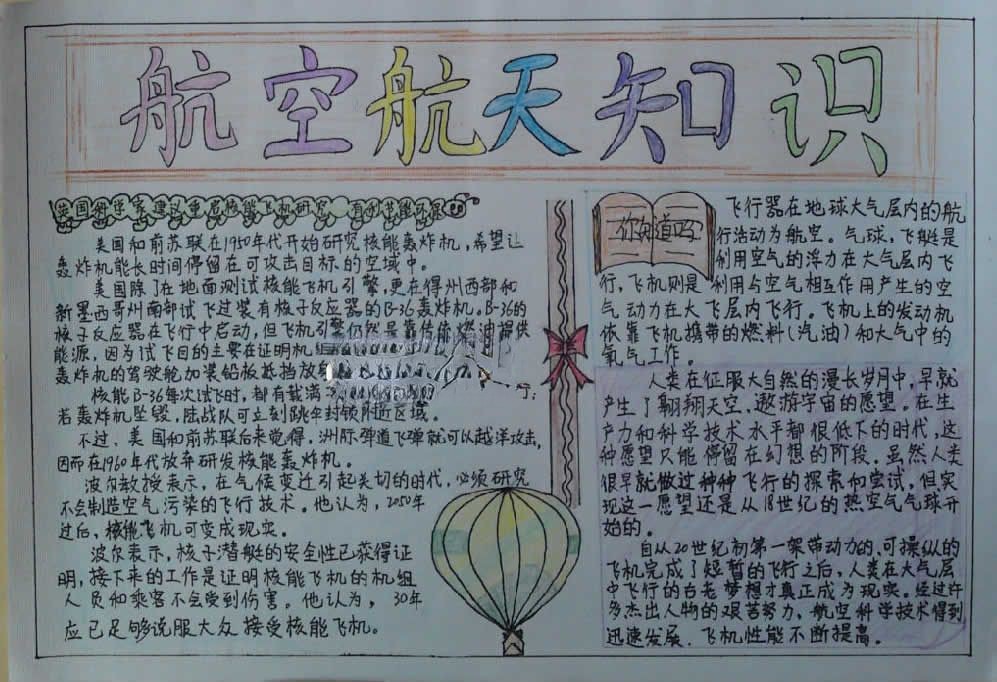 航空航天知识
美国科学家建议重启核能飞机研究 有利节能环保
美国和前苏联在1950年代开始研究核能轰炸机，希望让
轰炸机能长时间停留在可攻击目标的空域中。
美国除了在地面测试核能飞机引擎，更在得州西部和
新墨西哥州南部试飞过装有核子反应器的B-36轰炸机。B-36的
核子反应器在飞行中启动，但飞机引擎仍然是靠传统燃油提供
能源，因为试飞目的主要在证明机
轰炸机的驾驶舱加装铅板抵挡放射
核能B-36每次试飞时，都有载满
若轰炸机坠毁，陆战队可立刻跳伞封锁附近区域。
不过、美国和前苏联后来觉得，洲际弹道飞弹就可以越洋攻击，
因而在1960年代放弃研发核能轰炸机。
波尔教授表示，在气候变迁引起关切的时代，必须研究
不会制造空气污染的飞行技术。他认为，2050年
过后，核能飞机可变成现实。
波尔表示，核子潜艇的安全性已获得证
明，接下来的工作是证明核能飞机的机组
人员和乘客不会受到伤害。他认为，30年
应已足够说服大众接受核能飞机。
你知道吗？
飞行器在地球大气层内的航
行活动为航空。气球，飞艇是
利用空气的浮力在大气层内飞
行，飞机则是利用与空气相互作用产生的空
气动力在大飞层内飞行。飞机上的发动机
依靠飞机携带的燃料（汽油）和大气中的
氧气工作。
人类在征服大自然的漫长岁月中，早就
产生了翱翔天空、遨游宇宙的愿望。在生
产力和科学技术水平都很低下的时代，这
种愿望只能停留在幻想的阶段。虽然人类
很早就做过种种飞行的探索和尝试，但实
现这一愿望还是从18世纪的热空气气球开
始的。
自从20世纪初第一架带动力的、可操纵的
飞机完成了短暂的飞行之后，人类在大气层
中飞行的古老梦想才真正成为现实。经过许
多杰出人物的艰苦努力、航空科学技术得到
迅速发展、飞机性能不断提高。